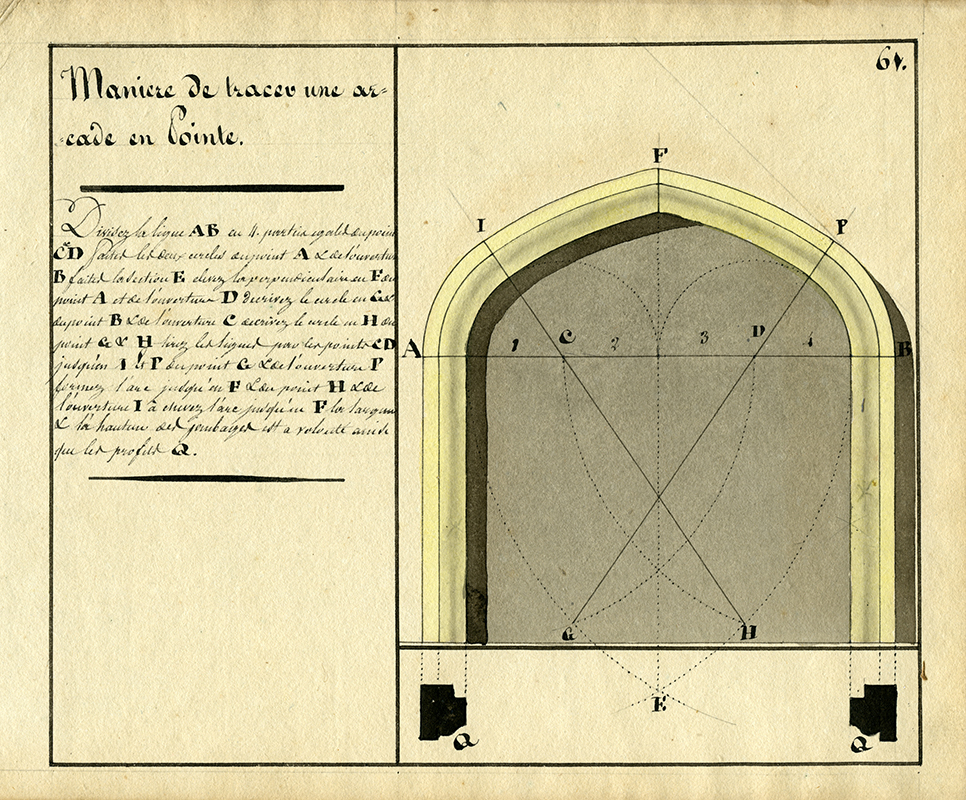 Maniere de tracer une ar=
=cade en Pointe.
Divisez la ligne AB en 4. parties egales au point
C et D faites les deux cercles du point A & de l'ouverture
B faites la section E elevez la perpendiculaire en F du
point A et de l'ouverture D decrivez le cercle en G &
du point B & de l'ouverture C decrivez le cercle en H du
point G & H tirez les lignes par les points CD
jusqu'en I et P du point G & de l'ouverture P
formez l'arc jusqu'en F & du point H & de
l'ouverture I elevez l'arc jusqu'en F
& la hauteur des est a volonté ainsi
que les profils Q.
F
I
P
C
D
1
2
3
4
A
B
G
H
E
Q
Q